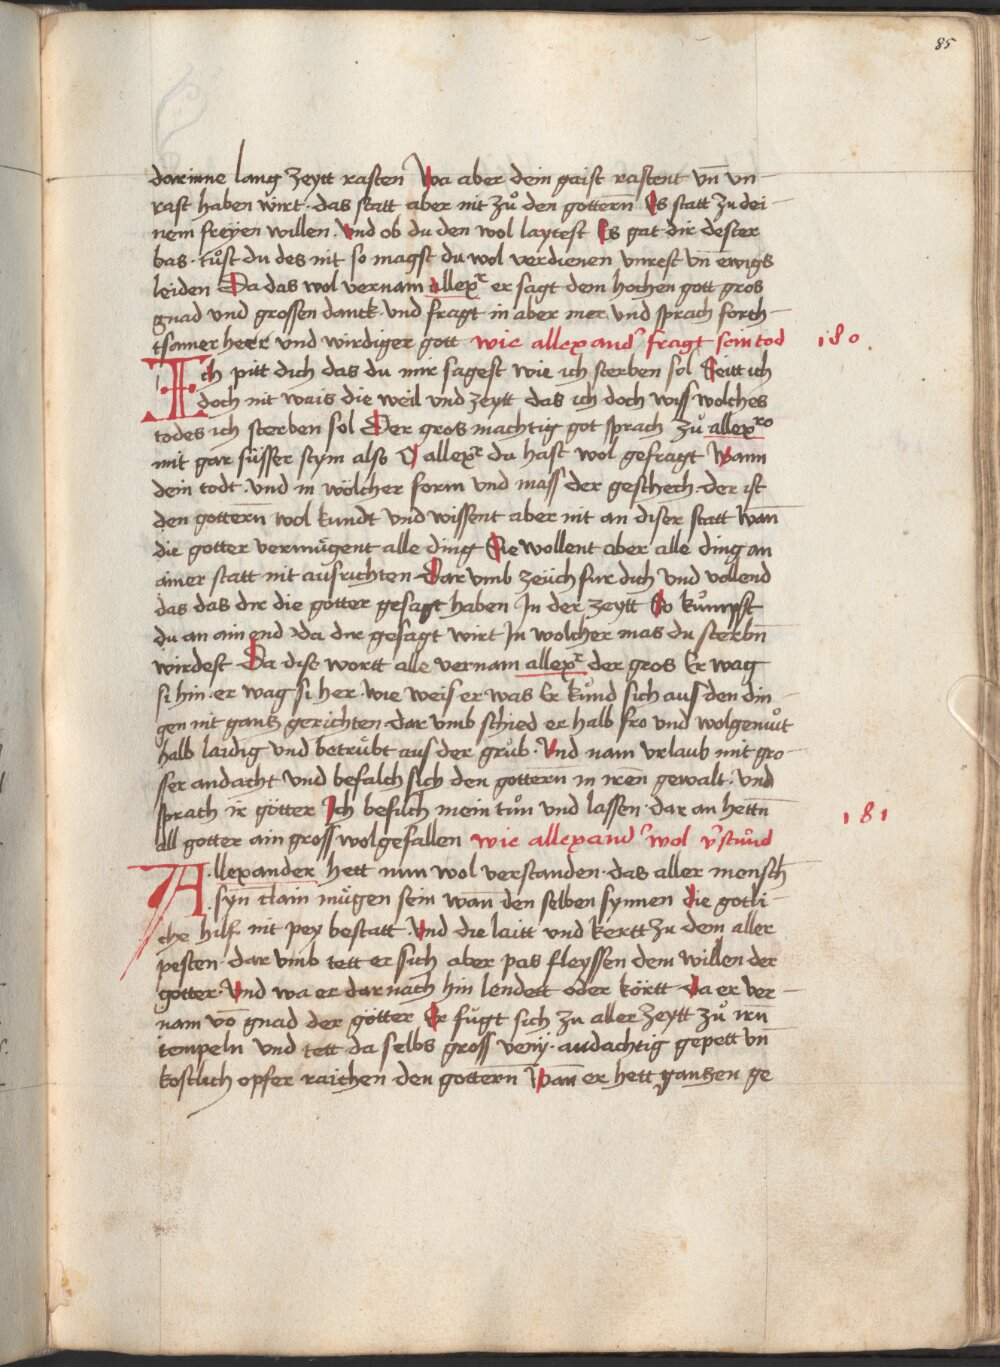 85
darinne lang zeytt rasten Wa aber dein gaist rastent vn̄ vn-
rast haben wirt · das statt aber nit zů den gottern Es statt zu dei-
nem freyen willen · Vnd ob du den wol laytest Es gat dir dester
bas · tůst du des nit so magst du wol verdienen vnrest vn̄ ewigs
leiden Da das wol vernam allexr er sagt dem hochen gott gros
gnad vnd grossen danck · vnd fragt in aber mer vnd sprach forch-
tsamer herr vnd wirdiger gott wie allexand' fragt sein tod 180
Ich pitt dich das du mir sagest wie ich sterben sol Seitt ich
doch nit wais die weil vnd zeytt das ich doch wiss wolches
todes ich sterben sol Der gros machtig got sprach zů allexro
mit gar süsser stym also O allexr du hast wol gefragt Wann
dein todt · vnd in wölcher form vnd mass der geschech · der ist
den gottern̄ wol kundt vnd wissent aber nit an diser statt Wan̄
die gotter vermügent alle ding Sie wollent aber alle ding an
ainer statt nit ausrichten Dar vmb zeüch fur dich vnd vollend
das das dir die gotter gesagt haben In der zeytt So kumpst
du an ain end da dir gesagt wirt In wolcher mas du sterbn̄
wirdest Da dise wortt alle vernam allexr der gros Er wag
si hin · er wag si her · wie weis er was Er kund sich aus den din-
gen nit gantz gerichten dar vmb schied er halb fro vnd wolgemůt
halb laidig vnd betrübt aus der grůb · Vnd nam vrlaub mit gro-
sser andacht vnd befalch sich den gottern in iren̄ gewalt · vnd
sprach ir götter Ich befilch mein tůn vnd lassen · dar an hettn̄
all gotter ain gross wolgefallen wie allexand' wol v'stůnd 181
Allexander hett nun wol verstanden · das aller mensch
syn̄ clain mügen sein wan̄ den selben synnen die gotli-
che hilf nit pey bestatt · Vnd die laitt vnd kertt zu dem aller
pesten · dar vmb tett er sich aber pas fleyssen dem willen der
gotter · Vnd wa er dar nach hin lendett oder körtt Da er ver-
nam vō gnad der götter Er fůgt sich zu aller zeytt zů irn̄
tempeln vnd tett da selbs gross venij · andachtig gepett vn̄
kostlich opfer raichen den gottern̄ Wan̄ er hett gantzen ge